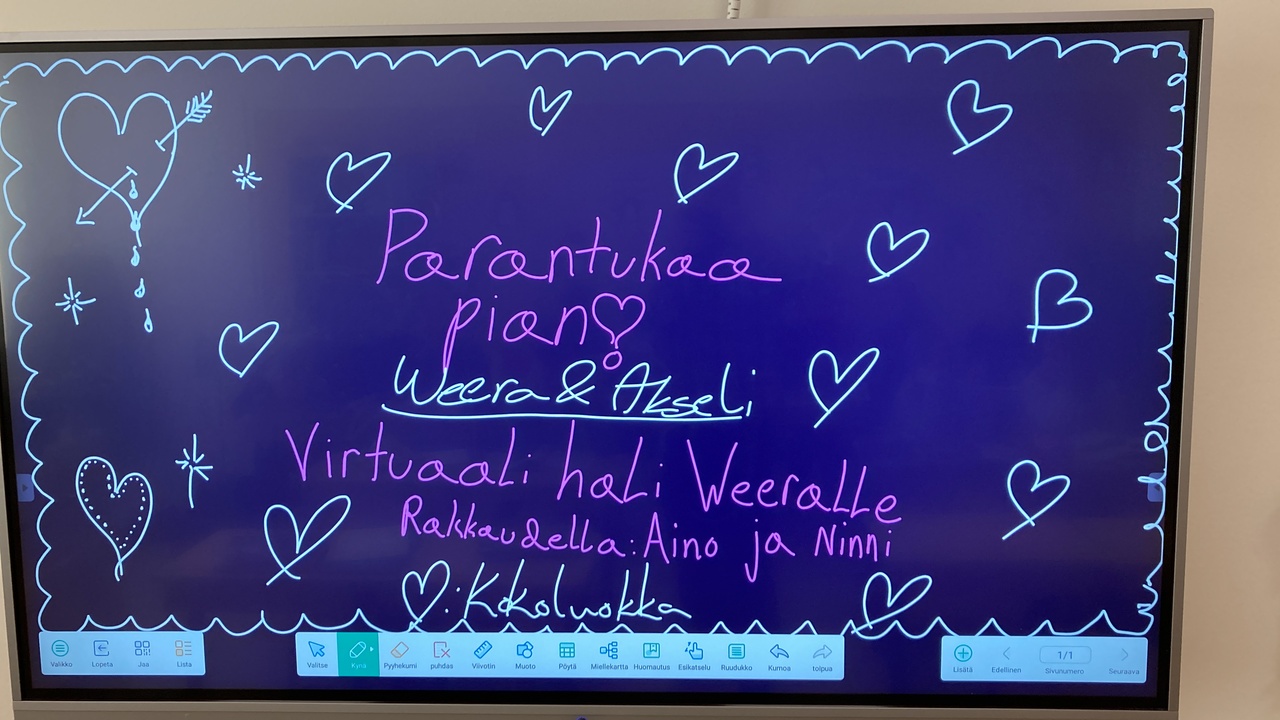 Parantukaa
pian!
Weera & Akseli
Virtuaali hali Weeralle
Rakkaudella: Aino ja Ninni
: Kokoluokka
Valikko Lopeta Jaa Lista
Valitse Kynä Pyyhekumi puhdas Viivotin Muoto Pöytä Miellekartta Huomautus Esikatselu Ruudukko Kumoa toipua
Lisätä Edellinen 1/1 Sivunumero Seuraava